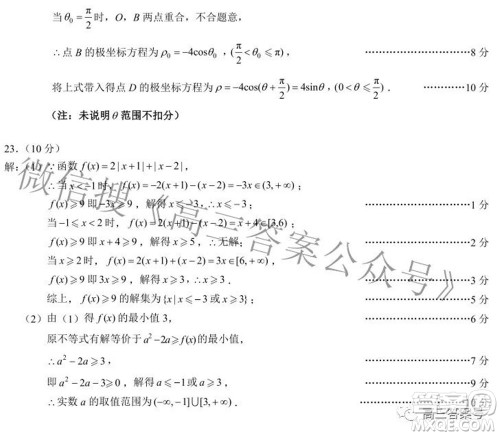 当θ₀=π/2时，O，B 两点重合，不合题意，
∴点 B 的极坐标方程为ρ₀=−4cosθ₀，(π/2<θ₀⩽π)， ……………………8 分
将上式带入得点 D 的极坐标方程为ρ=−4cos(θ+π/2)=4sinθ，(0<θ⩽π/2)． …………10 分
(注：未说明θ范围不扣分)
23.（10 分）
解：（1）∵函数 f(x)=2|x+1|+|x−2|，
∴当 x<−1时，f(x)=−2(x+1)−(x−2)=−3x∈(3,+∞)；
f(x)⩾9 即−3x⩾9，解得x⩽−3，∴x⩽−3； ……………………1 分
当−1⩽x<2 时，f(x)=2(x+1)−(x−2)=x+4∈[3,6)；
f(x)⩾9 即 x+4⩾9，解得x⩾5，∴无解； ……………………2 分
当 x⩾2 时，f(x)=2(x+1)+(x−2)=3x∈[6,+∞)，
f(x)⩾9 即3x⩾9，解得x⩾3，∴x⩾3． ……………………3 分
综上，f(x)⩾9 的解集为{x|x⩽−3或x⩾3}； ……………………5 分
（2）由（1）得 f(x)的最小值 3， ……………………6 分
原不等式有解等价于a²−2a⩾f(x)的最小值，
∴a²−2a⩾3， ……………………7 分
即a²−2a−3⩾0，解得a⩽−1或a⩾3， ……………………9 分
∴实数 a 的取值范围为(−∞,−1]∪[3,+∞)． ……………………10 分
微信搜《高三答案公众号》
高三答案号